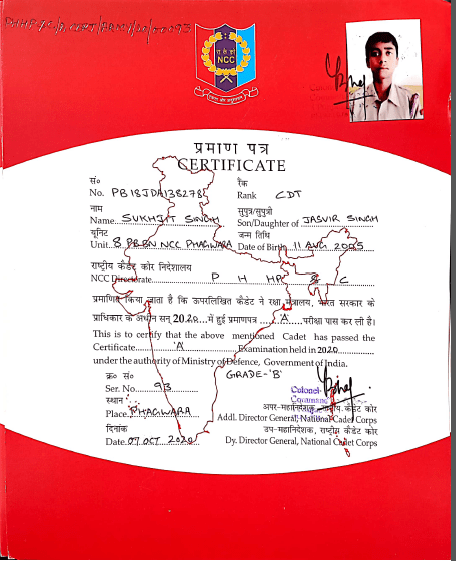 PHHP&C/A CERT/ARMY/20/00093
NCC
एकता और अनुशासन
प्रमाण पत्र
CERTIFICATE
सं०
No. PB18JDA138278
रैंक
Rank CDT
नाम
Name SUKHJIT SINGH
सुपुत्र/सुपुत्री
Son/Daughter of JASVIR SINGH
यूनिट
Unit 8 PB BN NCC PHAGWARA
जन्म तिथि
Date of Birth 11 AUG 2005
राष्ट्रीय कैडेट कोर निदेशालय
NCC Directorate P H HP & C
प्रमाणित किया जाता है कि ऊपरलिखित कैडेट ने रक्षा मंत्रालय, भारत सरकार के
प्राधिकार के अधीन सन् 2020 में हुई प्रमाणपत्र 'A' परीक्षा पास कर ली है।
This is to certify that the above mentioned Cadet has passed the
Certificate 'A' Examination held in 2020
under the authority of Ministry of Defence, Government of India.
GRADE-'B'
क्र० सं०
Ser. No. 93
स्थान
Place PHAGWARA
दिनांक
Date 07 OCT 2020
Colonel
अपर-महानिदेशक, राष्ट्रीय कैडेट कोर
Addl. Director General, National Cadet Corps
उप-महानिदेशक, राष्ट्रीय कैडेट कोर
Dy. Director General, National Cadet Corps